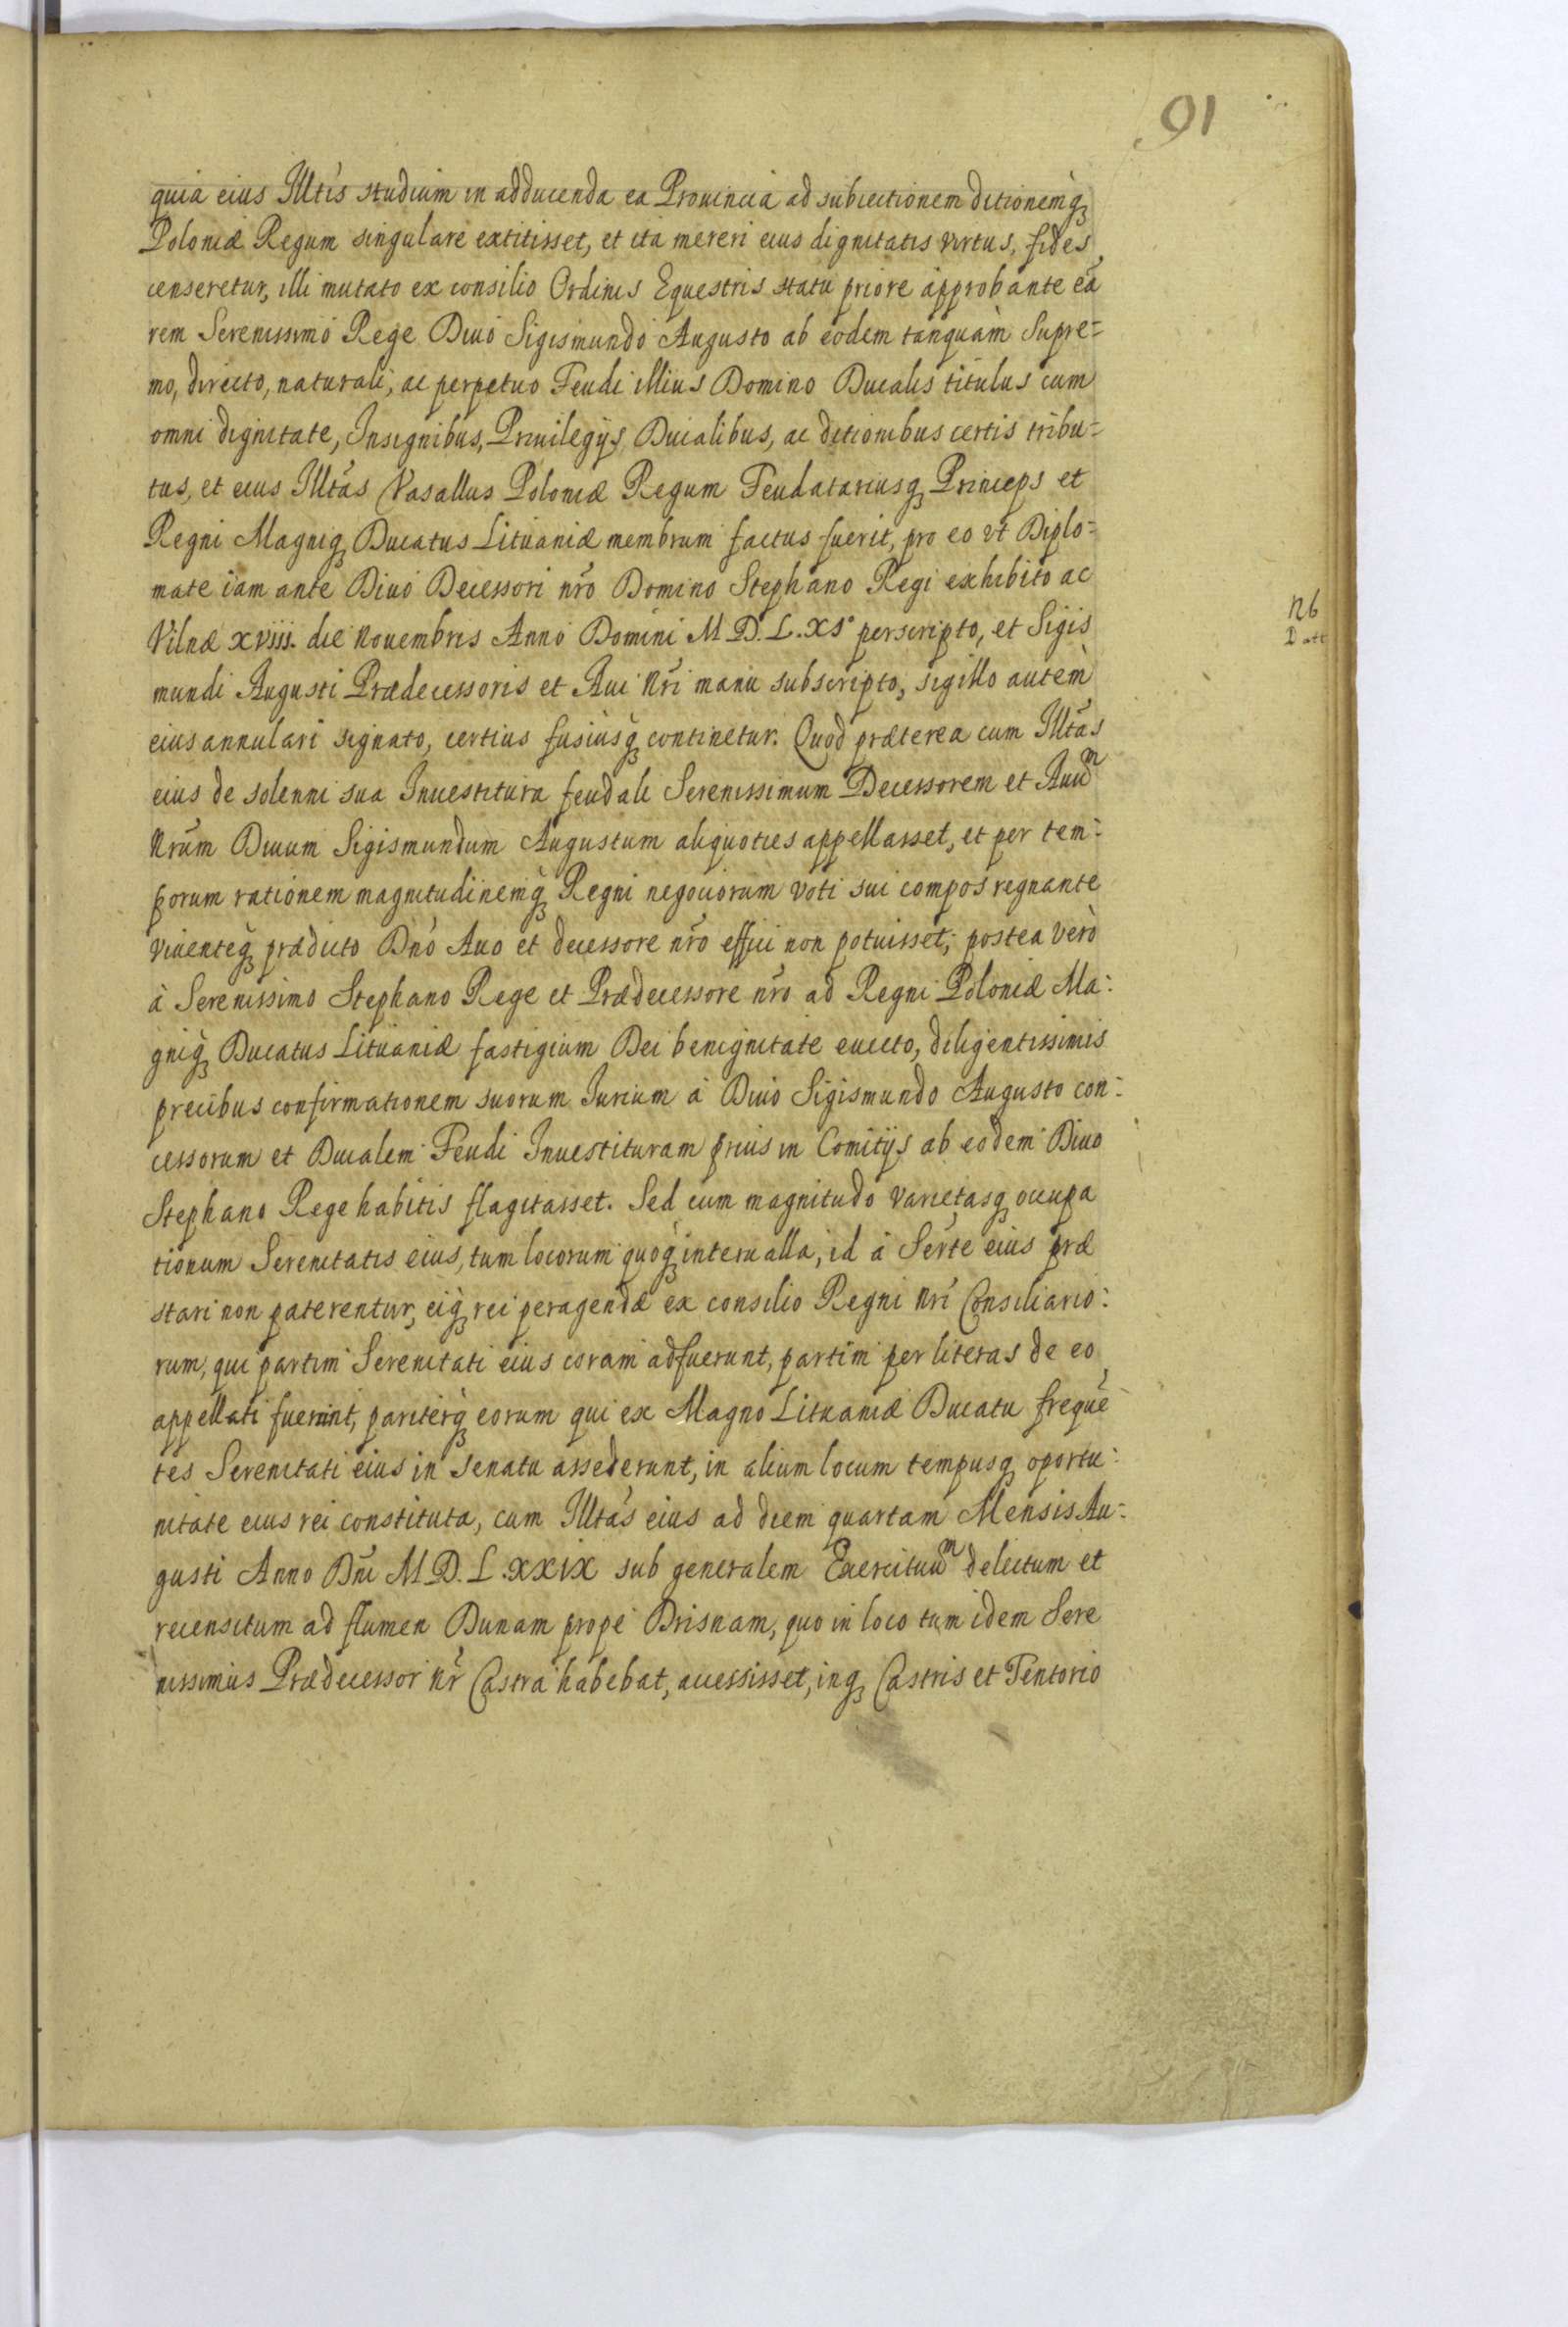 91
quia eius Illtis studium in adducenda ea Prouincia ad subiectionem ditionemq̃
Poloniæ Regum singulare extitisset, et ita mereri eius dignitatis virtus, fides
censeretur, illi mutato ex consilio Ordinis Equestris statu priore approbante eã
rem Serenissimo Rege Diuo Sigismundo Augusto ab eodem tanquam Supre=
mo, directo, naturali, ac perpetuo Feudi illius Domino Ducalis titulus cum
omni dignitate, Insignibus, Priuilegijs Ducalibus, ac ditionibus certis tribu=
tus, et eius Illtãs Vasallus Poloniæ Regum Feudatariusq̃ Princeps et
Regni Magniq̃ Ducatus Lituaniæ membrum factus fuerit, pro eo vt Diplo=
mate iam ante Diuo Decessori nrõ Domino Stephano Regi exhibito ac
Vilnæ xviii. die Nouembris Anno Domini M D. L. XI° perscripto, et Sigis
Nb
Datt
mundi Augusti Prædecessoris et Aui Nrĩ manu subscripto, sigillo autem
eius annulari signato, certius fusiusq̃ continetur. Quod præterea cum Illtãs
eius de solenni sua Inuestitura feudali Serenissimum Decessorem et Auũm
Nrũm Diuum Sigismundum Augustum aliquoties appellasset, et per tem:
porum rationem magnitudinemq̃ Regni negociorum voti sui compos regnante
viuenteq̃ prædicto Dnõ Auo et decessore nrõ effici non potuisset; postea verò
à Serenissimo Stephano Rege et Prædecessore nrõ ad Regni Poloniæ Ma:
gniq̃ Ducatus Lituaniæ fastigium Dei benignitate euecto, diligentissimis
precibus confirmationem suorum Iurium à Diuo Sigismundo Augusto con:
cessorum et Ducalem Feudi Inuestituram prius in Comitijs ab eodem Diuo
Stephano Rege habitis flagitasset. Sed cum magnitudo varietasq̃ occupa
tionum Serenitatis eius, tum locorum quoq̃ interualla, id à Sertẽ eius præ
stari non paterentur, eiq̃ rei peragendæ ex consilio Regni Nrĩ Consiliario:
rum, qui partim Serenitati eius coram adfuerunt, partim per literas de eo
appellati fuerunt, pariterq̃ eorum qui ex Magno Lituaniæ Ducatu frequẽ
tes Serenitati eius in Senatu assederunt, in alium locum tempusq̃ oportu:
nitate eius rei constituta, cum Illtãs eius ad diem quartam Mensis Au:
gusti Anno Dnĩ M.D.L.XXIX sub generalem Exercituũm delectum et
recensitum ad flumen Dunam prope Drisnam, quo in loco tum idem Sere
nissimus Prædecessor Nr̃ Castra habebat, accessisset, inq̃ Castris et Tentorio